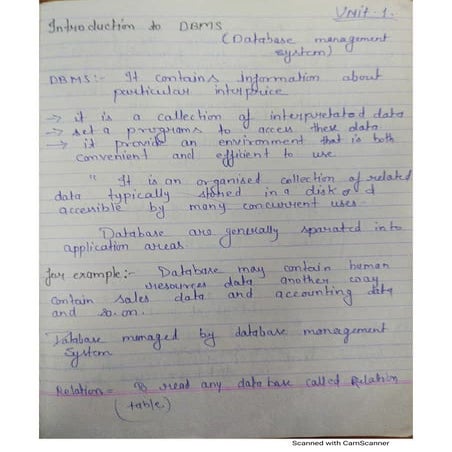 Unit-1.
Introduction to DBMS
(Database management
system)
DBMS:- It contains Information about
particular interprice
→ it is a collection of interpretated data
→ set a programs to access these data
→ it provide an environment that is both
convenient and effitient to use
" It is an organised collection of related
data typically stored in a disk
accessible by many concurrent uses
Database are generally sparated into
application areas
for example:- Database may contain human
resources data another coay
contain sales data and accounting data
and so. on.
Database managed by database management
System
Relation= read any data base called Relation
(table.)
Scanned with CamScanner